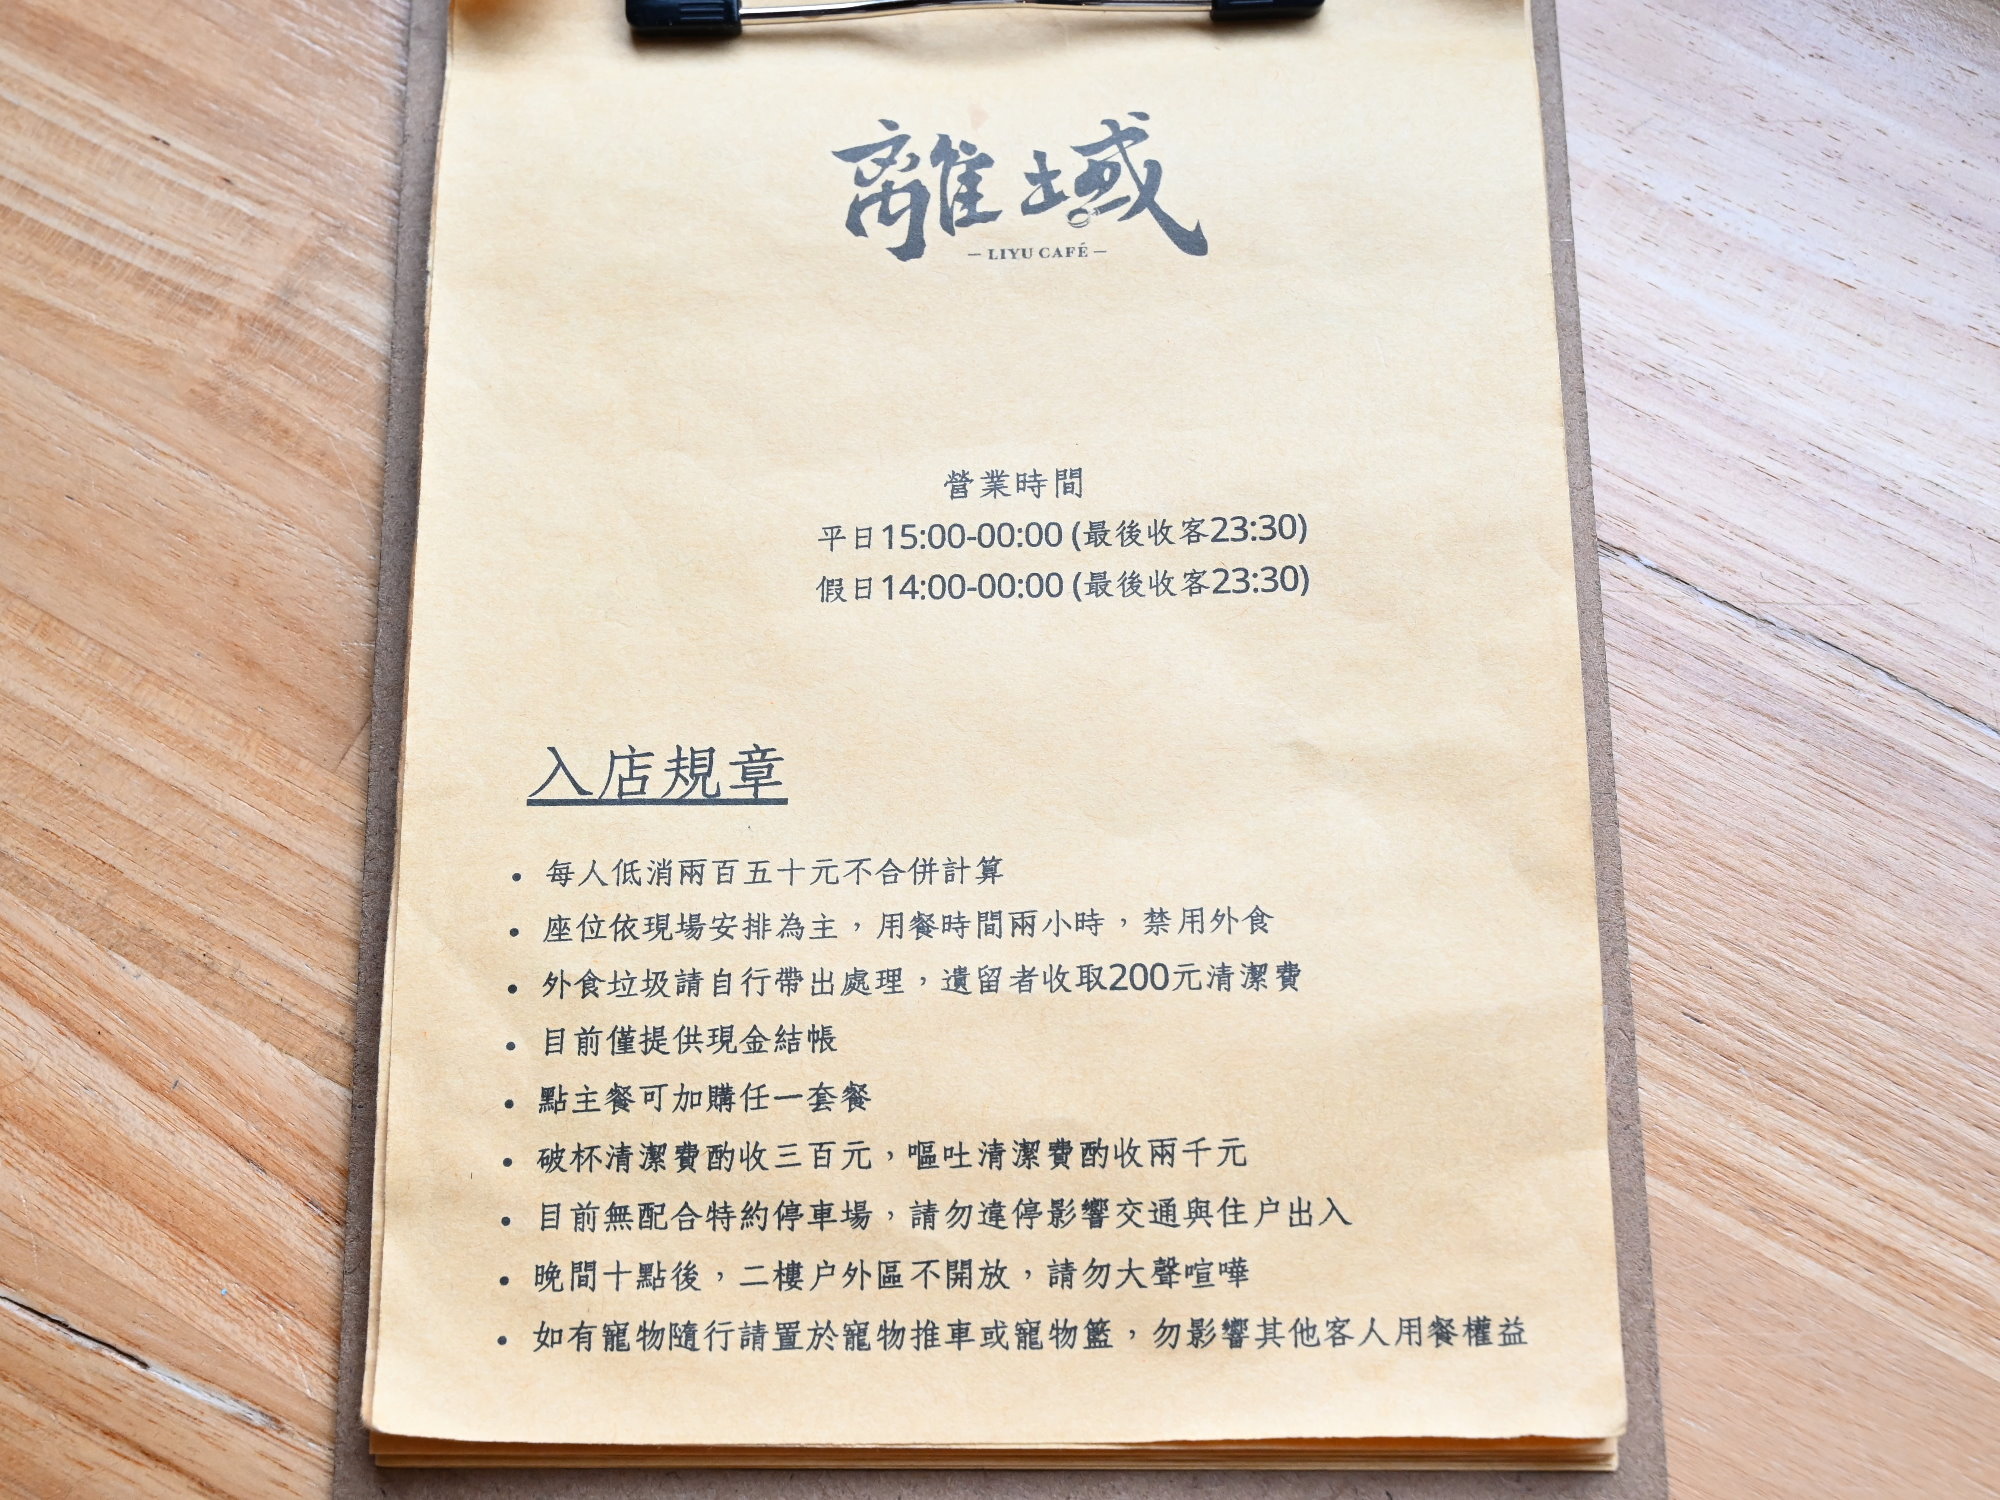 離域
— LIYU CAFÉ —
營業時間
平日15:00-00:00 (最後收客23:30)
假日14:00-00:00 (最後收客23:30)
入店規章
• 每人低消兩百五十元不合併計算
• 座位依現場安排為主，用餐時間兩小時，禁用外食
• 外食垃圾請自行帶出處理，遺留者收取200元清潔費
• 目前僅提供現金結帳
• 點主餐可加購任一套餐
• 破杯清潔費酌收三百元，嘔吐清潔費酌收兩千元
• 目前無配合特約停車場，請勿違停影響交通與住戶出入
• 晚間十點後，二樓戶外區不開放，請勿大聲喧嘩
• 如有寵物隨行請置於寵物推車或寵物籃，勿影響其他客人用餐權益